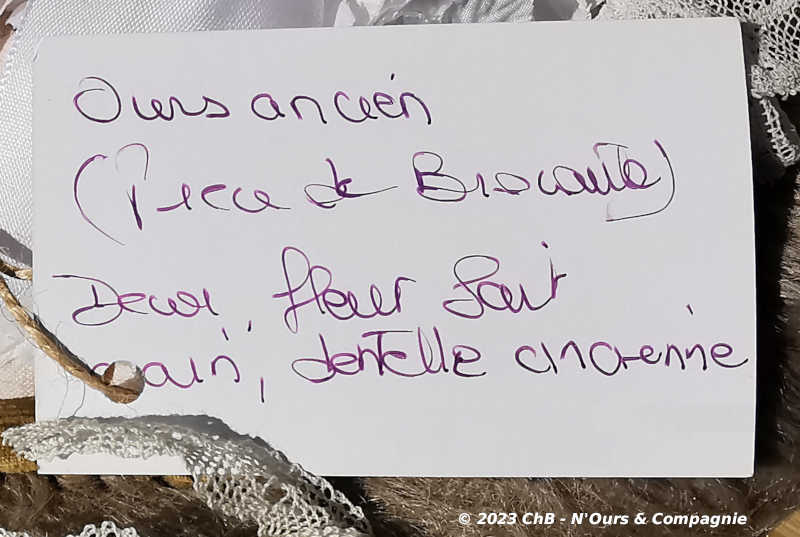 Ours ancien
(Piece de Brocante)
Decor, fleur fait
main, dentelle ancienne
© 2023 ChB - N'Ours & Compagnie